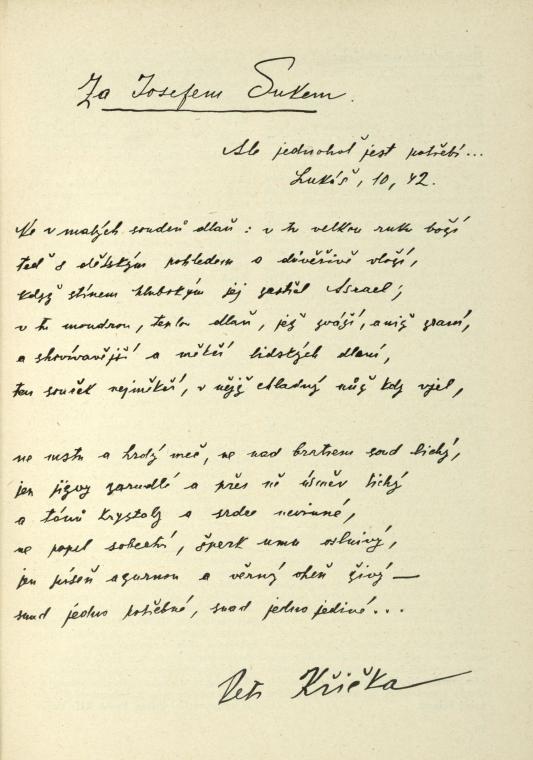 Za Josefem Sukem.
Ale jednohoť jest potřebí...
Lukáš, 10, 42.
Ne v malých soudců dlaň: v tu velkou ruku boží
teď s dětským pohledem a důvěřivě vloží,
když stínem hlubokým jej zastřel Asrael;
v tu moudrou, teplou dlaň, jež zváží, aniž zraní,
a shovívavější a měkčí lidských dlaní,
ten souček nejměkčí, v nějž chladný nůž kdy vjel,
ne mstu a hrdý meč, ne nad bratrem soud lichý,
jen jizvy zarudlé a přes ně úsměv tichý
a tónů krystaly a srdce nevinné,
ne popel sobectví, šperk umu oslnivý,
jen píseň azurnou a věrný oheň živý —
snad jedno potřebné, snad jedno jediné...
Petr Křička